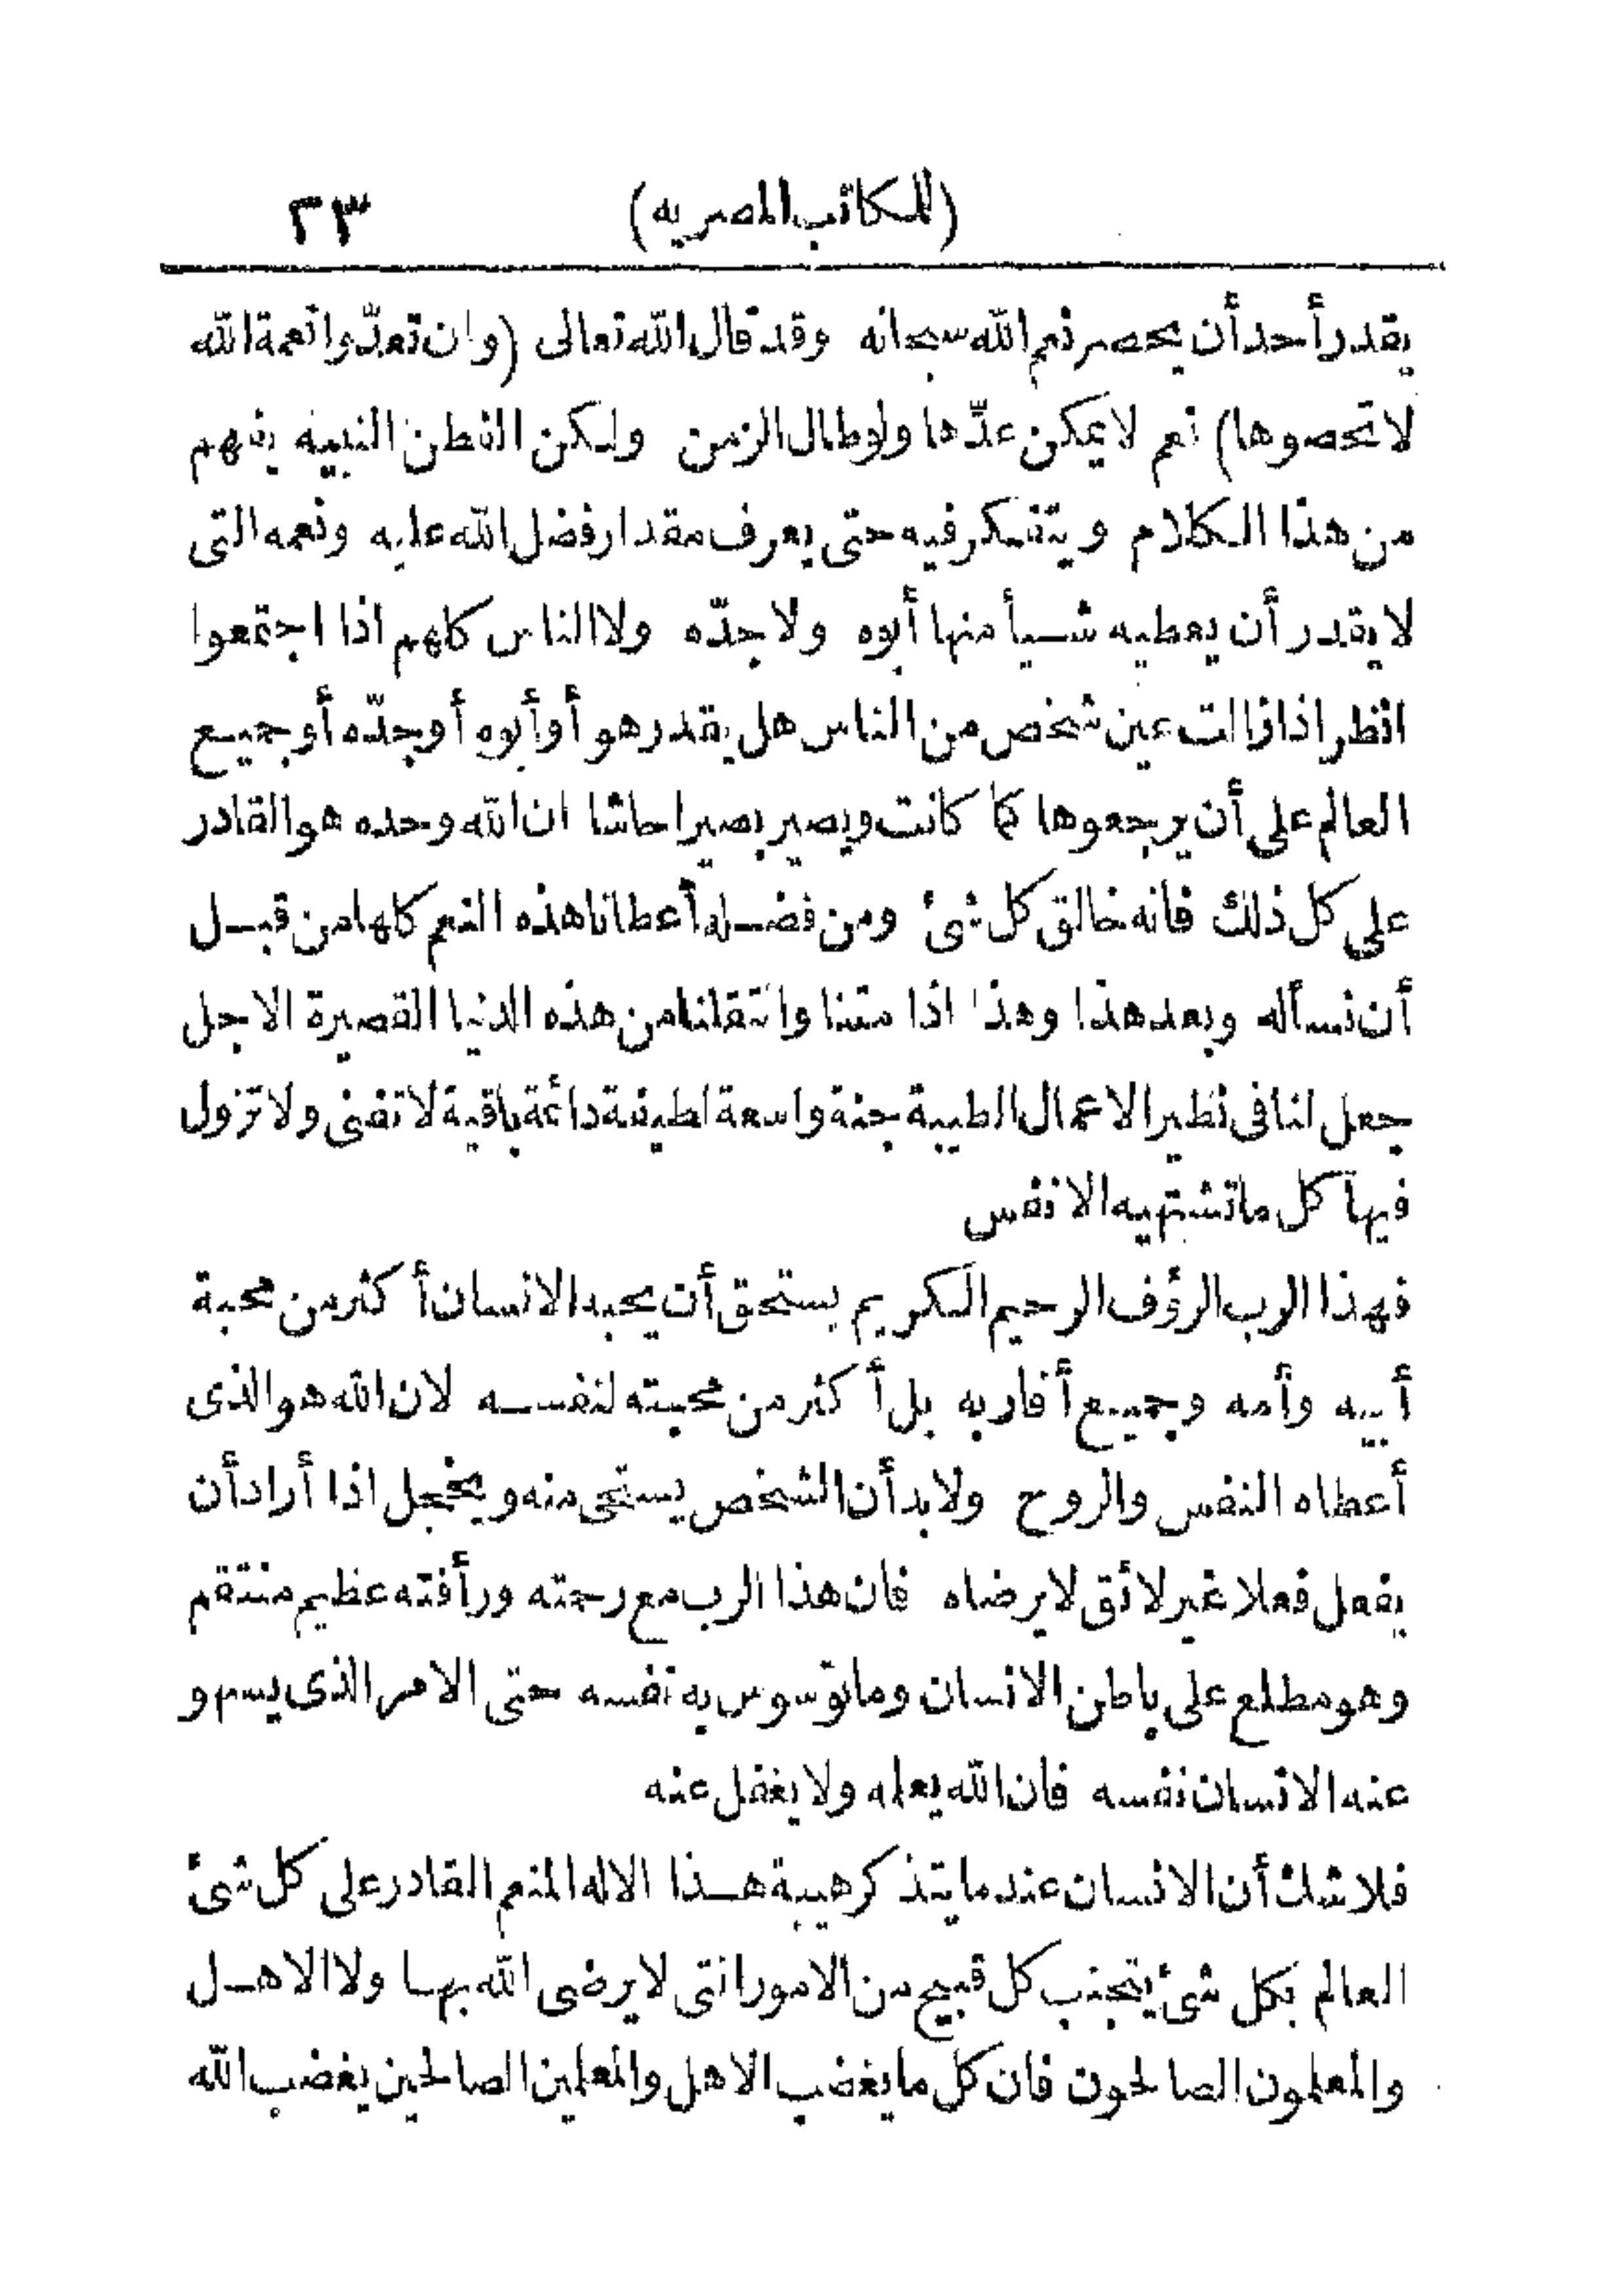 (للمكاتب المصريه) ٣٣
يقدر أحد أن يحصر نعم الله سبحانه وقد قال الله تعالى (وان تعدّوا نعمة الله
لا تحصوها) نعم لا يمكن عدّها ولو طال الزمن ولكن الفطن النبيه يفهم
من هذا الكلام ويتفكر فيه حتى يعرف مقدار فضل الله عليه ونعمه التى
لا يقدر أن يعطيه شيأ منها أبوه ولا جدّه ولا الناس كلهم اذا اجتمعوا
انظر اذا زالت عين شخص من الناس هل يقدر هو أو أبوه أو جدّه أو جميع
العالم على أن يرجعوها كما كانت ويصير بصيرا حاشا ان الله وحده هو القادر
على كل ذلك فانه خالق كل شئ ومن فضله أعطانا هذه النعم كلها من قبل
أن نسأله وبعد هذا وهذا اذا متنا وانتقلنا من هذه الدنيا القصيرة الاجل
جعل لنا فى نظير الاعمال الطيبة جنة واسعة لطيفة دائمة باقية لا تفنى ولا تزول
فيها كل ما تشتهيه الانفس
فهذا الرب الرؤف الرحيم الكريم يستحق أن يحبه الانسان أكثر من محبة
أبيه وأمه وجميع أقاربه بل أكثر من محبته لنفسه لان الله هو الذى
أعطاه النفس والروح ولا بد أن الشخص يستحى منه ويخجل اذا أراد أن
يفعل فعلا غير لائق لا يرضاه فان هذا الرب مع رحمته ورأفته عظيم منتقم
وهو مطلع على باطن الانسان وما توسوس به نفسه حتى الامر الذى يسهو
عنه الانسان نفسه فان الله يعلمه ولا يغفل عنه
فلا شك أن الانسان عندما يتذكر هيبة هذا الاله المنعم القادر على كل شئ
العالم بكل شئ يتجنب كل قبيح من الامور التى لا يرضى الله بها ولا الاهل
والمعلمون الصالحون فان كل ما يغضب الاهل والمعلمين الصالحين يغضب الله